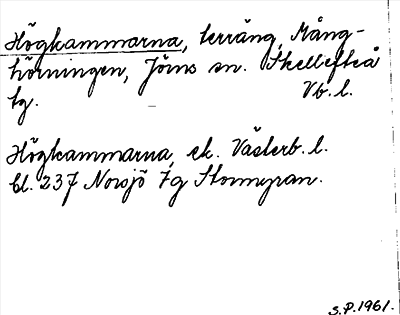 Högkammarna, terräng, Mång-
hörningen, Jörns sn. Skellefteå
tg. Vb. l.
Högkammarna, ek. Västerb. l.
bl. 237 Norsjö 7g Stormyran.
S.P. 1961.